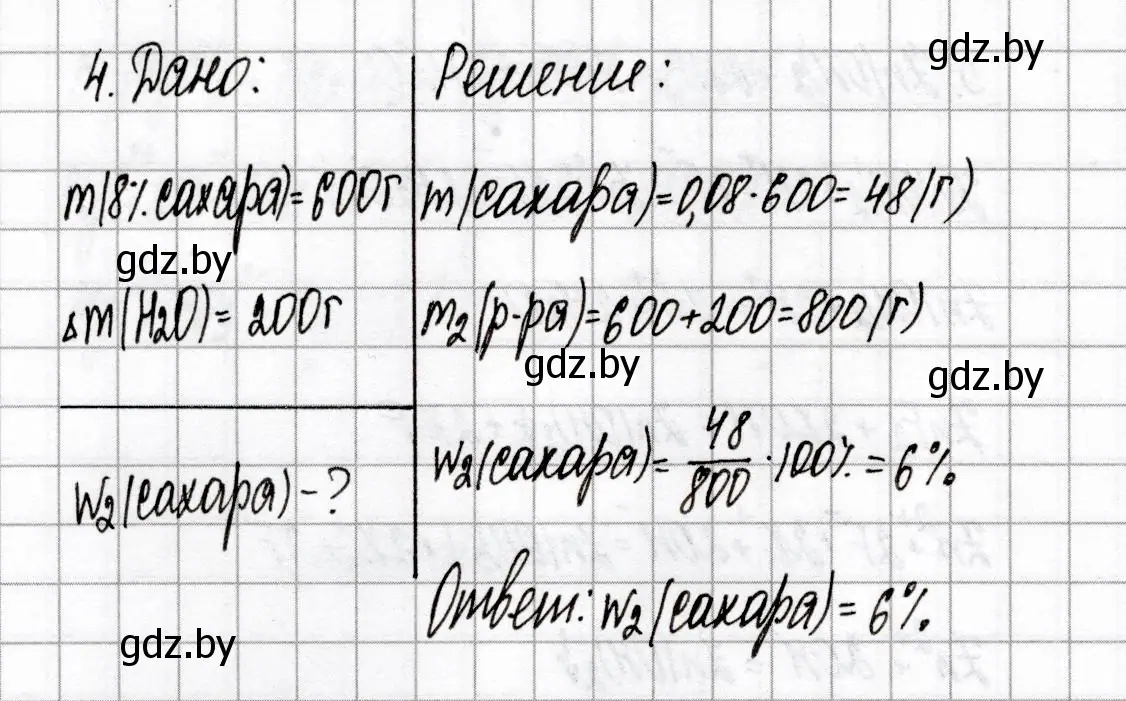 gdz.by
4. Дано:
m(8% сахара)=600г
gdz.by
△m(H₂O)= 200г
w₂(сахара)-?
gdz.by
Решение:
m(сахара)=0,08·600=48(г)
m₂(р-ра)=600+200=800(г)
gdz.by
gdz.by
w₂(сахара)= 48/800 ·100% = 6%.
Ответ: w₂(сахара)= 6%.